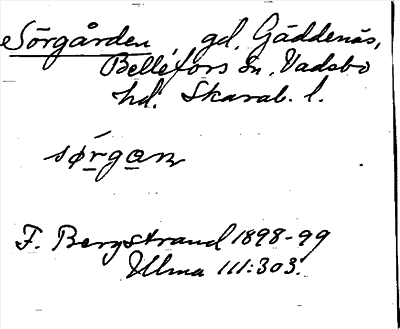 Sörgården gd. Gäddenäs,
Bellefors sn, Vadsbo
hd. Skarab. l.
sørgan
F. Bergstrand 1898-99
Ulma 111:303.